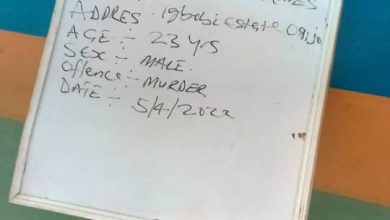 ADDRES: Igbobi estate Ogijo
AGE:- 23 yrs
SEX:- MALE.
Offence:- MURDER
DATE:- 5/4/2022